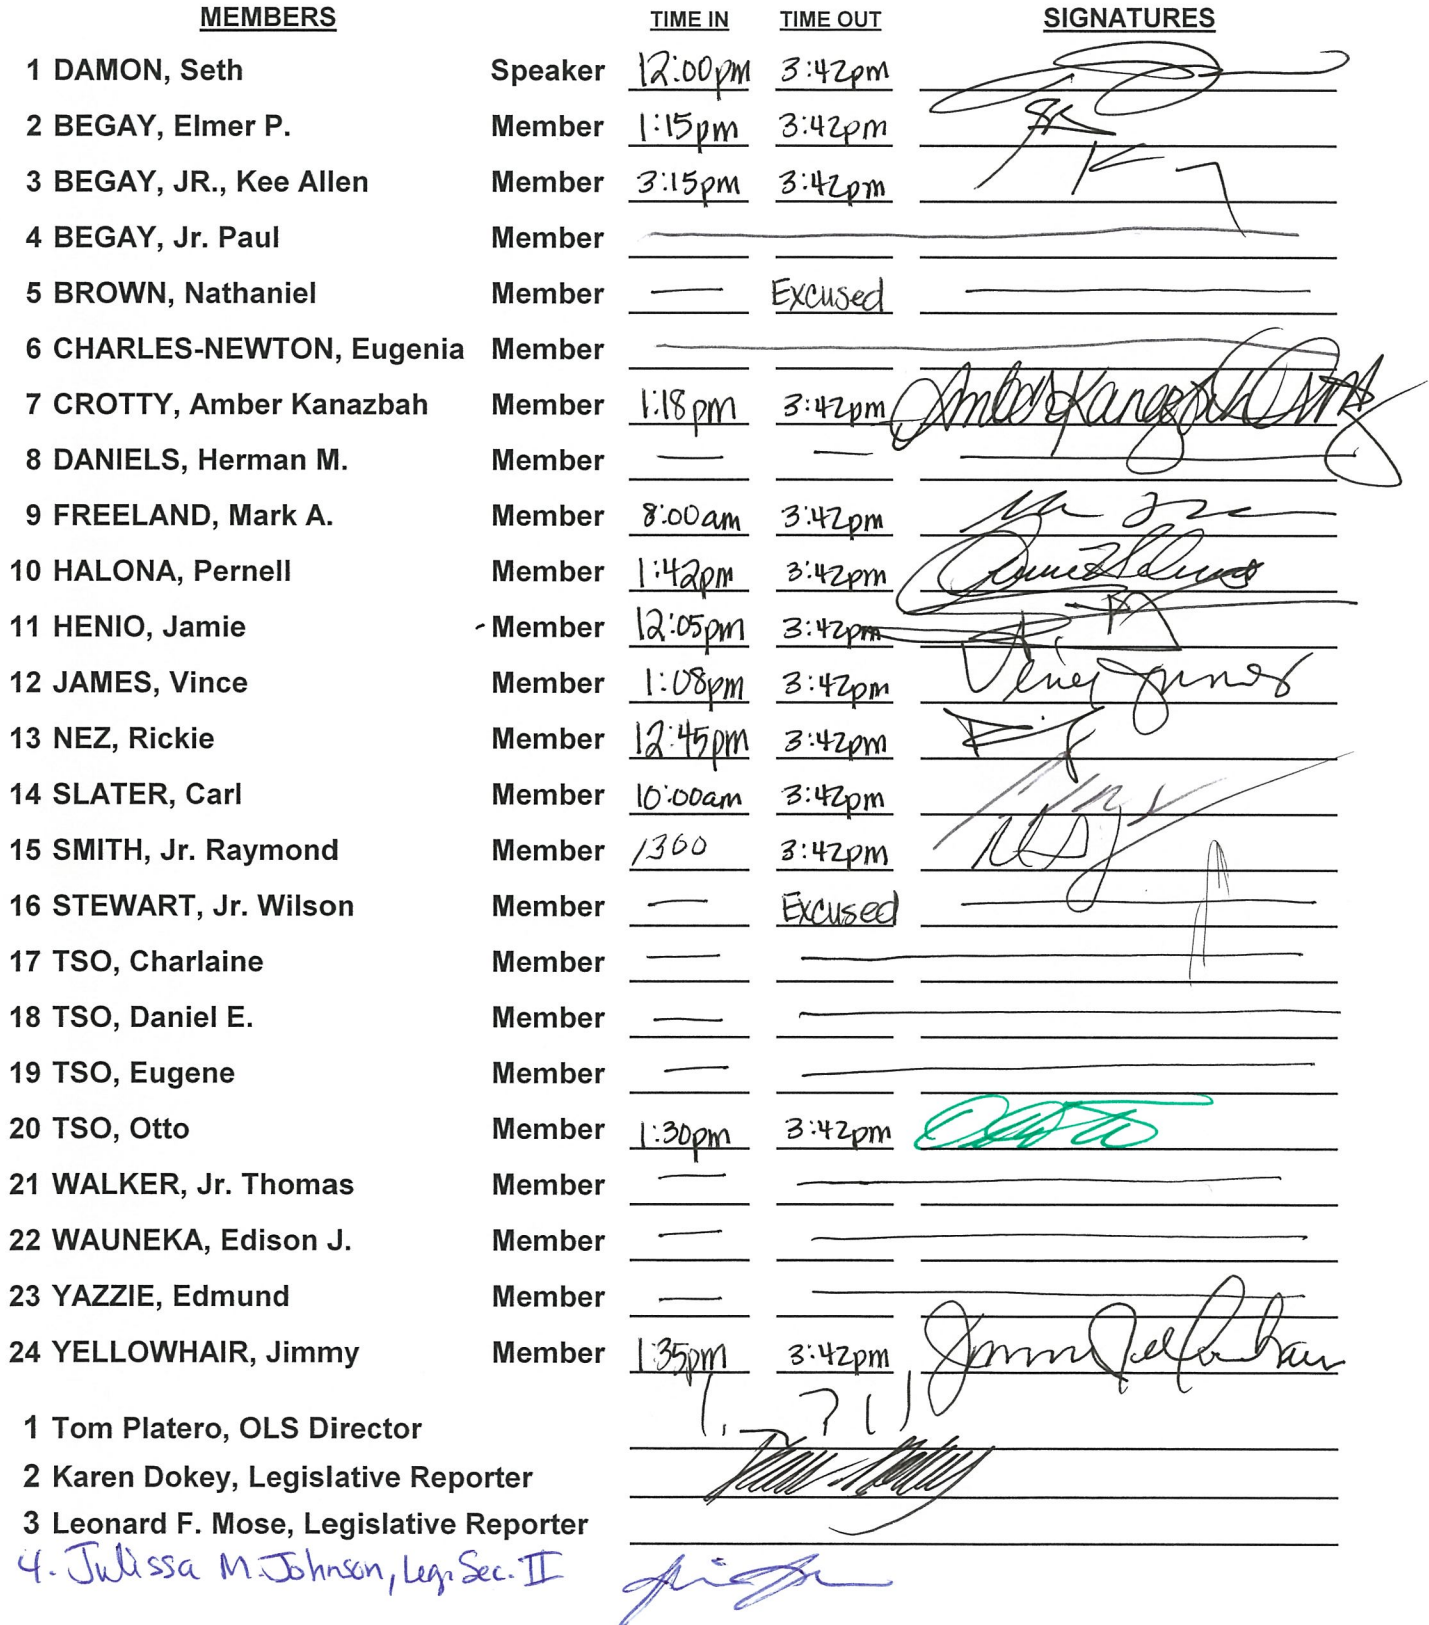 MEMBERS TIME IN TIME OUT SIGNATURES
1 DAMON, Seth Speaker 12:00pm 3:42pm
2 BEGAY, Elmer P. Member 1:15pm 3:42pm
3 BEGAY, JR., Kee Allen Member 3:15pm 3:42pm
4 BEGAY, Jr. Paul Member
5 BROWN, Nathaniel Member Excused
6 CHARLES-NEWTON, Eugenia Member
7 CROTTY, Amber Kanazbah Member 1:18pm 3:42pm
8 DANIELS, Herman M. Member
9 FREELAND, Mark A. Member 8:00am 3:42pm
10 HALONA, Pernell Member 1:42pm 3:42pm
11 HENIO, Jamie Member 12:05pm 3:42pm
12 JAMES, Vince Member 1:08pm 3:42pm
13 NEZ, Rickie Member 12:45pm 3:42pm
14 SLATER, Carl Member 10:00am 3:42pm
15 SMITH, Jr. Raymond Member 1300 3:42pm
16 STEWART, Jr. Wilson Member Excused
17 TSO, Charlaine Member
18 TSO, Daniel E. Member
19 TSO, Eugene Member
20 TSO, Otto Member 1:30pm 3:42pm
21 WALKER, Jr. Thomas Member
22 WAUNEKA, Edison J. Member
23 YAZZIE, Edmund Member
24 YELLOWHAIR, Jimmy Member 1:35pm 3:42pm
1 Tom Platero, OLS Director
2 Karen Dokey, Legislative Reporter
3 Leonard F. Mose, Legislative Reporter
4. Julissa M. Johnson, Leg. Sec. II